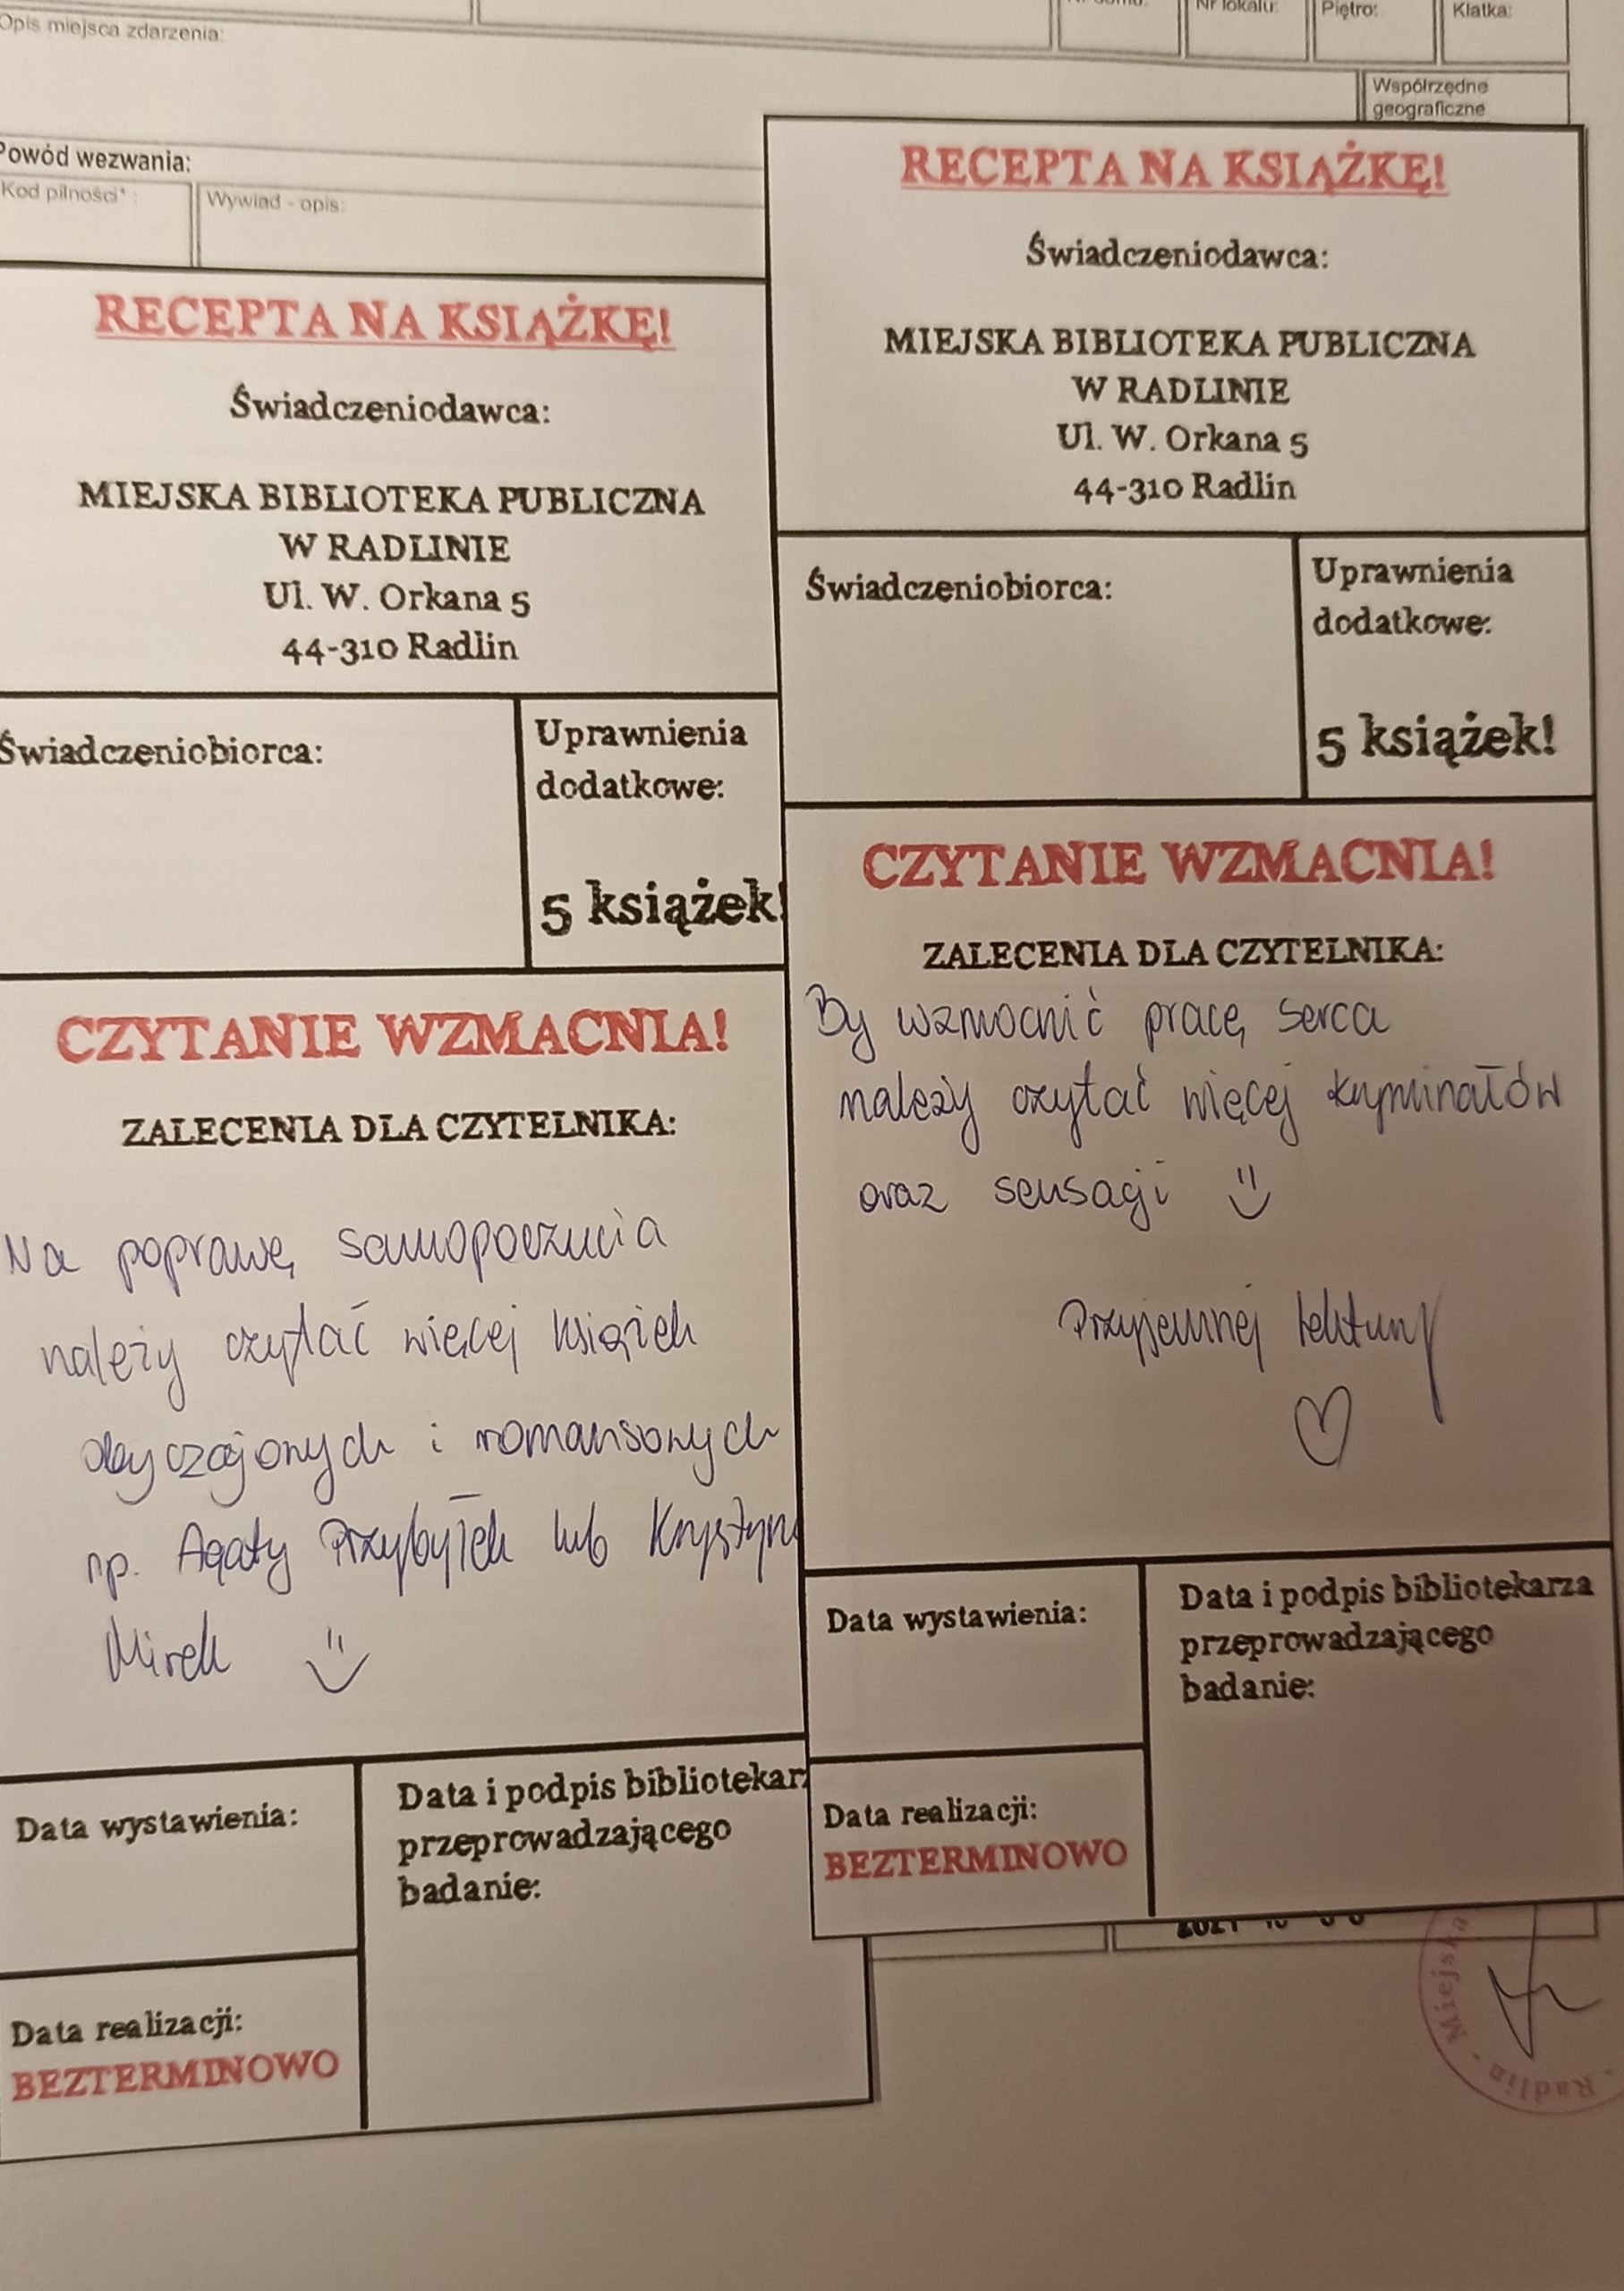 Nr lokalu:
Piętro:
Klatka:
Opis miejsca zdarzenia:
Współrzędne
geograficzne
Powód wezwania:
Kod pilności* :
Wywiad - opis:
RECEPTA NA KSIĄŻKĘ!
Świadczeniodawca:
MIEJSKA BIBLIOTEKA PUBLICZNA
W RADLINIE
Ul. W. Orkana 5
44-310 Radlin
Świadczeniobiorca:
Uprawnienia
dodatkowe:
5 książek!
CZYTANIE WZMACNIA!
ZALECENIA DLA CZYTELNIKA:
Na poprawę samopoczucia
należy czytać więcej książek
obyczajowych i romansowych
np. Agaty Przybyłek lub Krystyny
Mirek
Data wystawienia:
Data i podpis bibliotekarz
przeprowadzającego
badanie:
Data realizacji:
BEZTERMINOWO
RECEPTA NA KSIĄŻKĘ!
Świadczeniodawca:
MIEJSKA BIBLIOTEKA PUBLICZNA
W RADLINIE
Ul. W. Orkana 5
44-310 Radlin
Świadczeniobiorca:
Uprawnienia
dodatkowe:
5 książek!
CZYTANIE WZMACNIA!
ZALECENIA DLA CZYTELNIKA:
By wzmocnić pracę serca
należy czytać więcej kryminałów
oraz sensacji
Przyjemnej lektury
Data wystawienia:
Data i podpis bibliotekarza
przeprowadzającego
badanie:
Data realizacji:
BEZTERMINOWO
Radlin - Miejska